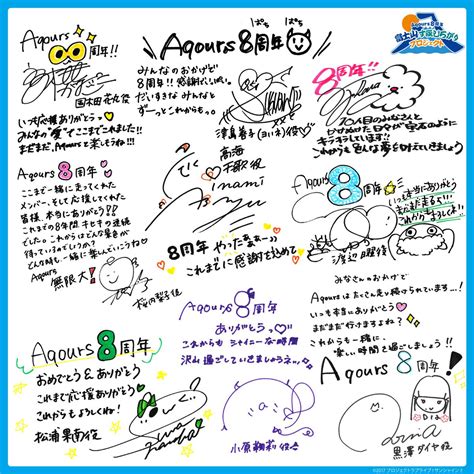 Aqours8周年
富士山すそ広がり
プロジェクト
Aqours
8周年!!
国木田花丸役
いつも応援ありがとう♡
みんなの"愛"でここまでこれました!!
まだまだ、Aqoursと楽しもうね!!!
ぱち
ぱち
Aqours 8周年
みんなのおかげで
8周年!!感謝だらけ
だいすきな みんなと
ずーっとこれからも♡
津島善子(ヨハネ)役
8周年
10人目のみなさんと
かけぬけた日々が宝石のように
キラキラしています!!
これからも色んな夢を叶えていきましょう
Aqours 8周年
ここまで一緒に走ってくれた
メンバー、そして応援してくれた
皆様、本当にありがとう!!
これまでの8年間 キセキの連続
でした。この先はどんな景色が
待っているのでしょうか?
どんな時も一緒に楽しんでいこうね♡
Aqours
無限大!
桜内梨子役
高海
千歌役
Inami
Anju
8周年 やったなぁー
これまでに感謝を込めて
Aqours
8周年
いつも本当にありがとう
まだまだ走るぞ!!
これからもよろしくね!
渡辺曜役
Aqours 8周年
おめでとう&ありがとう
これまで応援ありがとう
これからもよろしくね!
松浦果南役
Aqours 8周年
ありがとうっ♡
これからも シャイニーな時間
沢山過ごしていきましょうネッ♪
小原鞠莉役
みなさんのおかげで
Aqoursはたくさん走り続けられています...!
いつも本当にありがとう
まだまだ行けますよね?
これからも一緒に、
楽しい時間を過ごしましょう!
Aqours
8周年!
Dia
黒澤ダイヤ役
©2017 プロジェクトラブライブ!サンシャイン!!